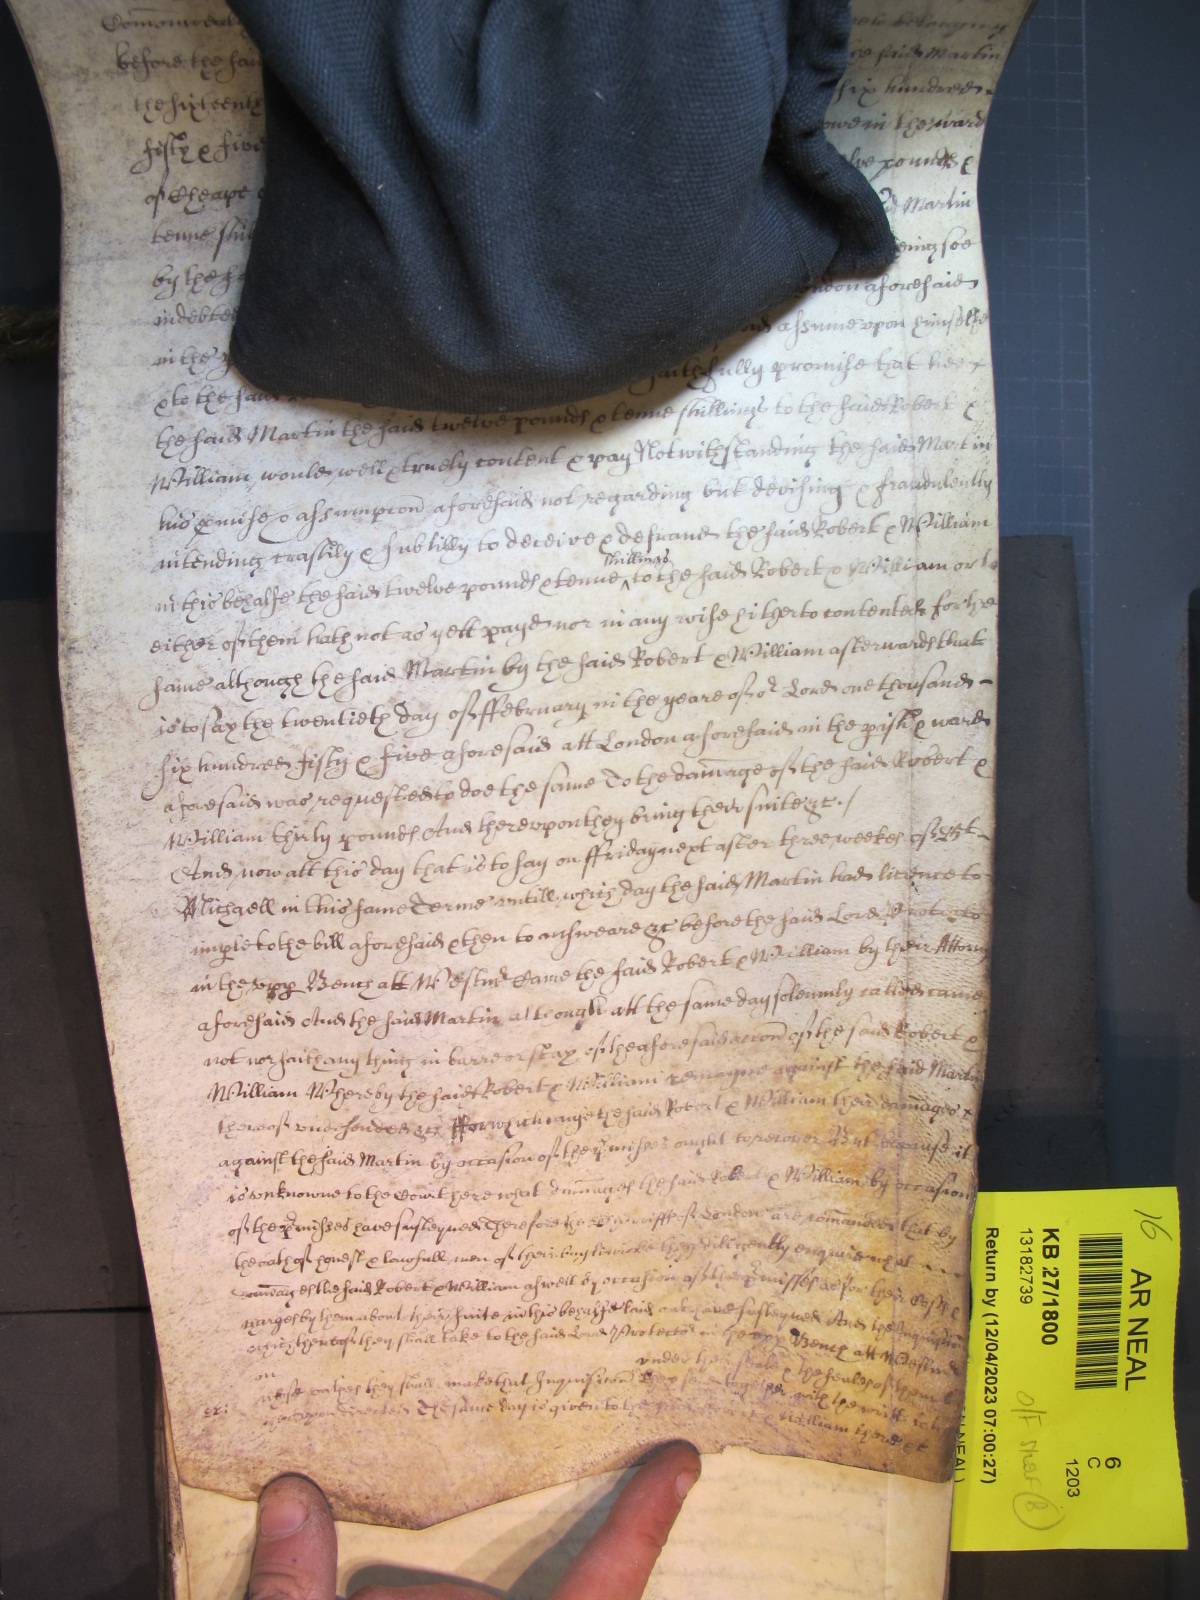 before the said
ce said Martin
the sixteenth
six hundred
fifty & five
owe in the ward
of Cheape
elve pounds &
tenne shil
Martin
by the sa
being soe
indebted
ondon aforesaid
in the p
assume upon himselfe
& to the said
faithfully promise that hee
the said Martin the said twelve pounds & tenne shillings to the said Robert &
William, would well & truely content & pay Notwithstanding the said Martin
his pmise & assumpcon aforesaid not regarding but devising & fraudulently
intending craftily & subtilly to deceive & defraud the said Robert & William
in this behalfe the said twelve pounds & tenne shillings to the said Robert & William or to
either of them hath not as yett payd nor in any wise hitherto contented for the
same although the said Martin by the said Robert & William afterwards that
is to say the twentieth day of ffebruary in the yeare of or Lord one thousand
six hundred fifty & five aforesaid att London aforesaid in the pish & ward
aforesaid was requested to doe the same To the damage of the said Robert &
William thirty pounds And thereupon they bring their suite &c. /
And now att this day that is to say on ffriday next after three weekes of St
Michaell in this same Terme untill which day the said Martin had licence to
imple to the bill aforesaid & then to answeare &c before the said Lord Protector
in the upp Bench att Westmr Came the said Robert & William by their Attorny
aforesaid And the said Martin although att the same day solemnly called came
not nor saith any thing in barre or stay of the aforesaid accon of the said Robert &
William Whereby the said Robert & William remayne against the said Martin
thereof undefended &c ffor which cause the said Robert & William their damages
against the said Martin by occasion of the pmisses ought to recover But because it
is unknowne to the Court here what damages the said Robert & William by occasion
of the pmisses have susteyned Therefore the Sheriffs of London are comanded that by
the oath of honest & lawfull men of their bayliwicke they diligently enquire what
damages the said Robert & William aswell by occasion of the pmisses as for their costs &
charges by them about their suite in this behalfe laid out have susteyned And the Inquisicon
which thereof they shall take to the said Lord Protector in the upp Bench att Westmr
on
under their seales & the seales of them
whose oathes they shall make that Inquisicon they send together with the writt
thereupon directed The same day is given to the said Robert & William there &c
AR NEAL
16
KB 27/1800
13182739
Return by (12/04/2023 07:00:27)
6
C
1203